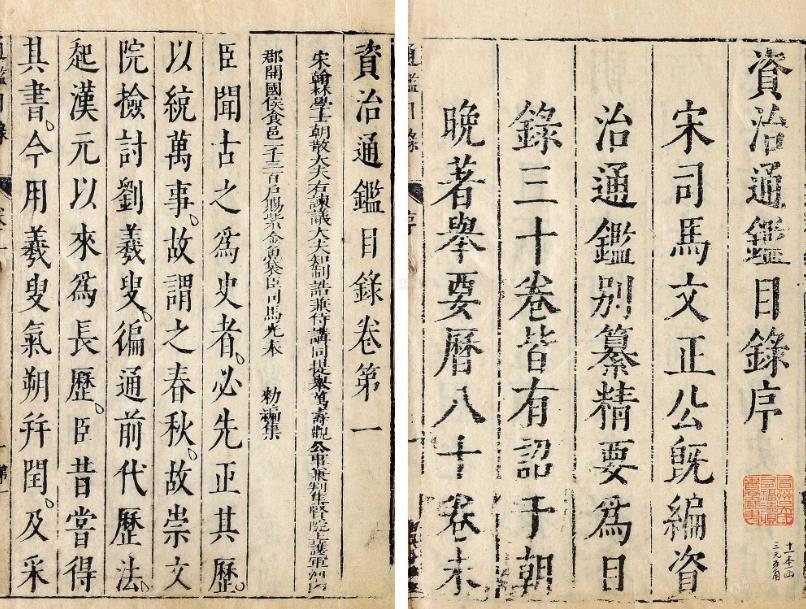 資治通鑑目錄序
宋司馬文正公旣編資
治通鑑別纂精要爲目
錄三十卷皆有詔于朝
晚著舉要曆八十卷未
資治通鑑目錄卷第一
宋翰林學士朝散大夫右諫議大夫知制誥兼侍講同提舉萬壽觀公事兼判集賢院上護軍河內
郡開國侯食邑一千三百戶賜紫金魚袋臣司馬光奉 勅編集
臣聞古之爲史者。必先正其曆。
以統萬事。故謂之春秋。故崇文
院檢討劉羲叟。徧通前代歷法。
起漢元以來爲長歷。臣昔嘗得
其書。今用羲叟氣朔并閏。及采
通鑑目錄